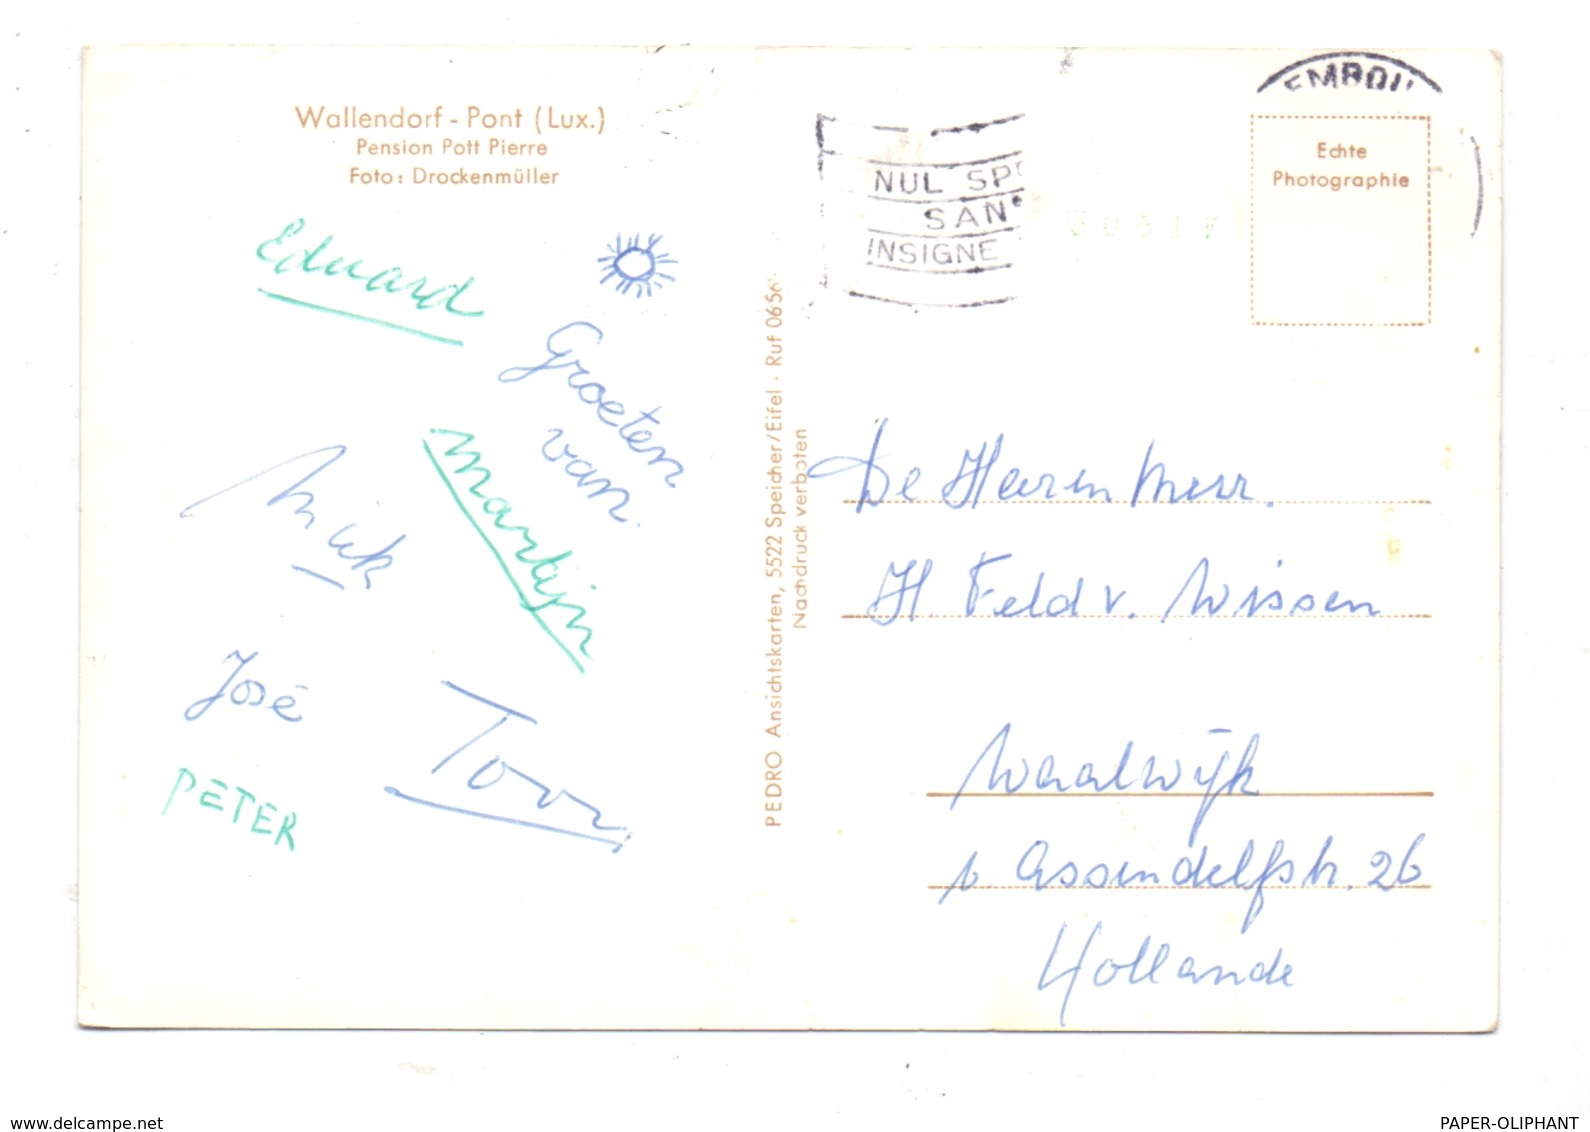 Wallendorf - Pont (Lux.)
Pension Pott Pierre
Foto: Drockenmüller
Eduard
Groeten
van
Martijn
José
PETER
Toon
PEDRO Ansichtskarten, 5522 Speicher/Eifel · Ruf 0656
Nachdruck verboten
NUL SP
SAN
INSIGNE
EMBOU
Echte
Photographie
De Heer en Mevr.
H. Feld v. Wissen
Waalwijk
v. Assendelfstr. 26
Hollande
delcampe.net
PAPER-OLIPHANT